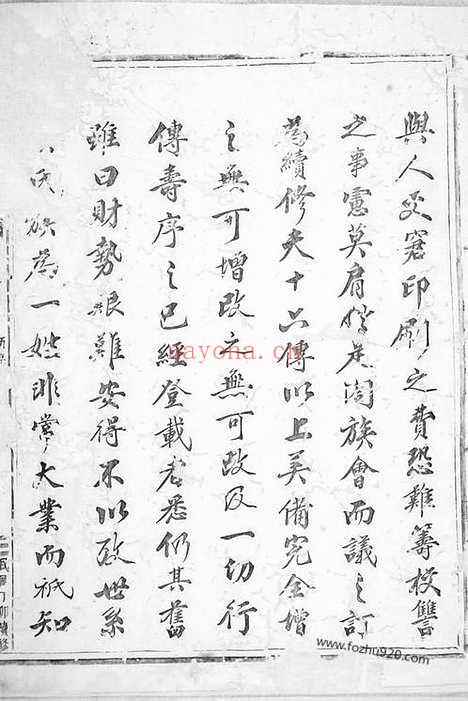 與人交窘印刷之費恐難籌校讐
之事慮莫肩於是闔族會而議之訂
為續修夫十六傳以上美備完全增
之無可增改之無可改及一切行
傳壽序之已經登載者悉仍其舊
雖曰財勢艱難安得不以致世系
氏族為一姓非常大業而祇知
nayona.cn
www.fozhu920.com